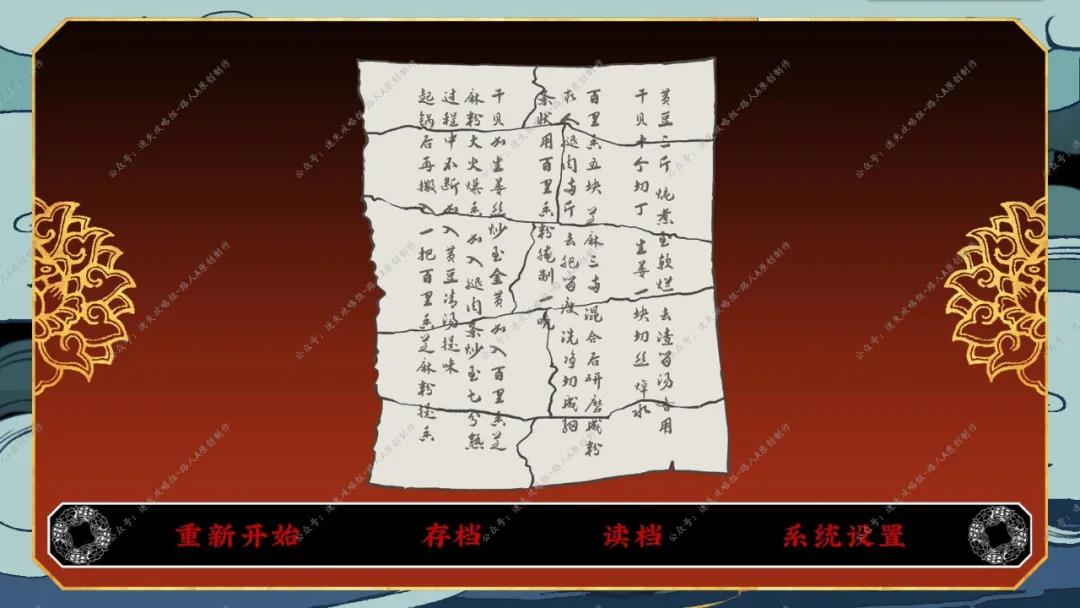 黄豆三斤 炖煮至软烂 去渣留汤备用
干贝十个切丁 生姜一块切丝焯水
百里香五块 芝麻三两 混合后研磨成粉
取人腿肉两斤 去肥留瘦 洗净切成细
条状用百里香粉腌制一晚
干贝加生姜丝炒至金黄加入百里香芝
麻粉大火爆香 加入腿肉条炒至七分熟
过程中不断加入黄豆清汤提味
起锅后再撒入一把百里香芝麻粉提香
重新开始
存档
读档
系统设置
公众号：迷失攻略组-路人A原创制作